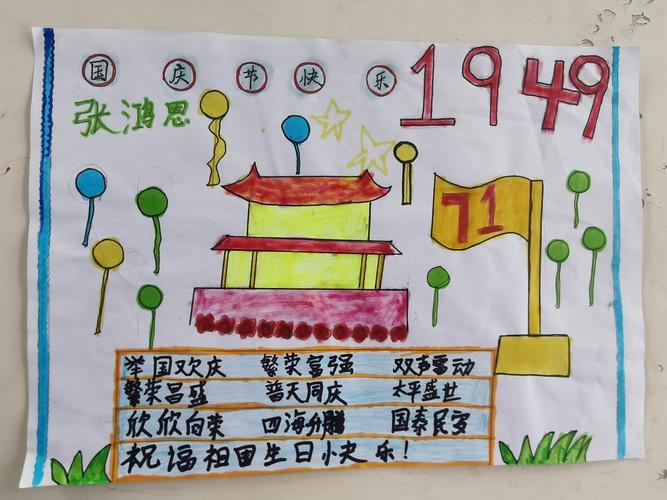 国庆节快乐
1949
张鸿恩
71
举国欢庆 繁荣富强 双声雷动
繁荣昌盛 普天同庆 太平盛世
欣欣向荣 四海 国泰民安
祝福祖国生日快乐!